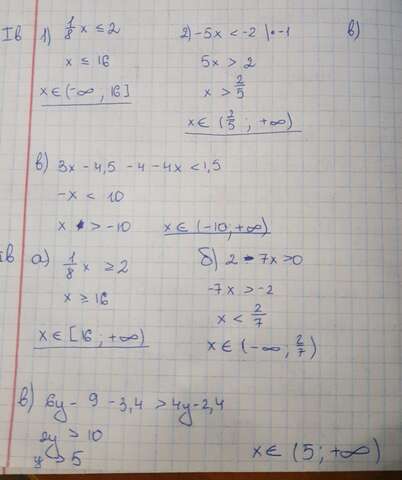 Iв 1) 1/8 x ≤ 2
x ≤ 16
x ∈ (-∞, 16]
2) -5x < -2 | · -1
5x > 2
x > 2/5
x ∈ (2/5 ; +∞)
в)
в) 3x - 4,5 - 4 - 4x < 1,5
-x < 10
x > -10
x ∈ (-10, +∞)
IIв а) 1/8 x ≥ 2
x ≥ 16
x ∈ [16 ; +∞)
б) 2 - 7x > 0
-7x > -2
x < 2/7
x ∈ (-∞; 2/7)
в) 6y - 9 - 3,4 > 4y - 2,4
2y > 10
y > 5
x ∈ (5 ; +∞)